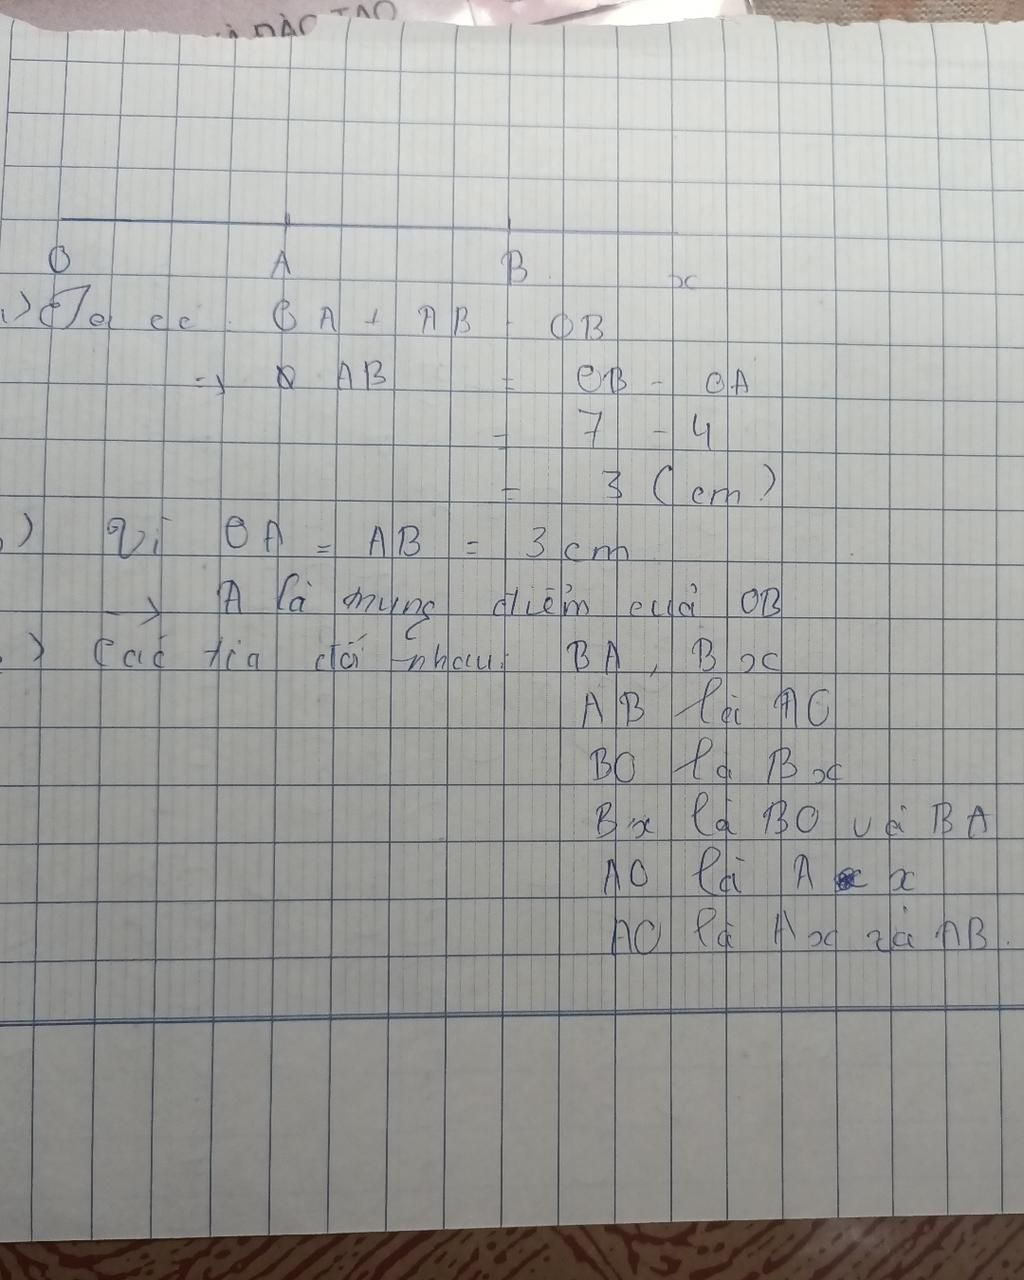 ĐÀO TẠO
O A B x
Ta có: OA + AB = OB
=> AB = OB - OA
= 7 - 4
= 3 (cm)
) Vì OA = AB = 3 cm
-> A là trung điểm của OB
) Các tia đối nhau: BA, Bx
AB là AO
BO là Bx
Bx là BO và BA
AO là A x
AO là Ax và AB.